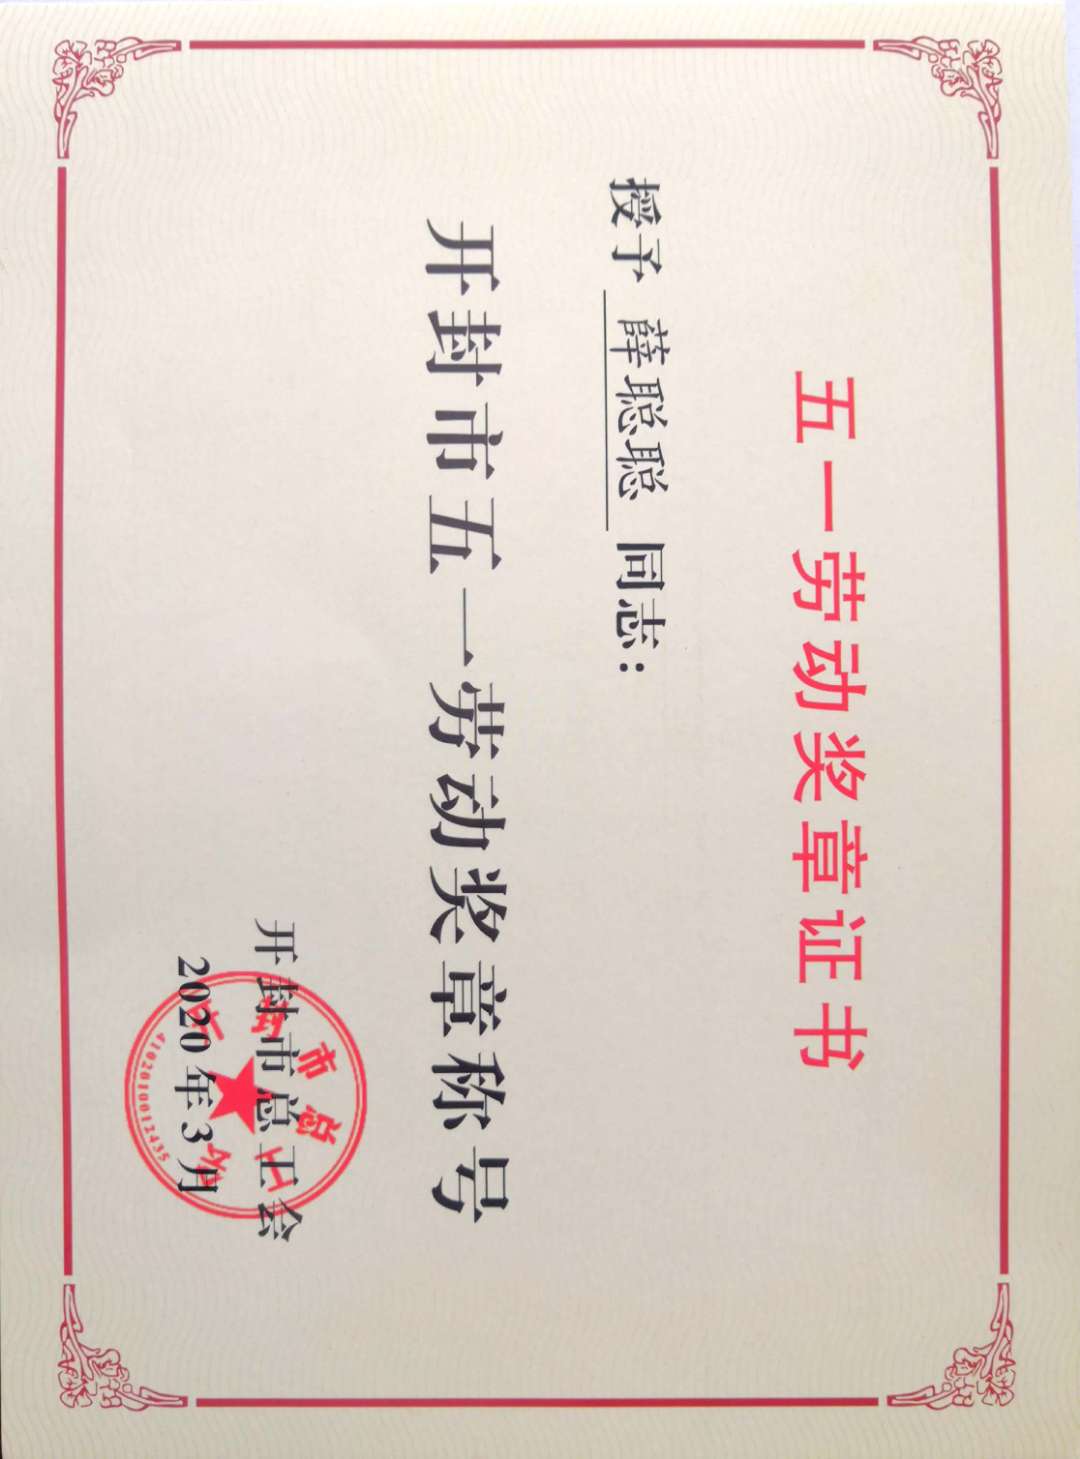 五一劳动奖章证书
授予 薛聪聪 同志：
开封市五一劳动奖章称号
开封市总工会
2020年3月
开封市总工会
4102010012435